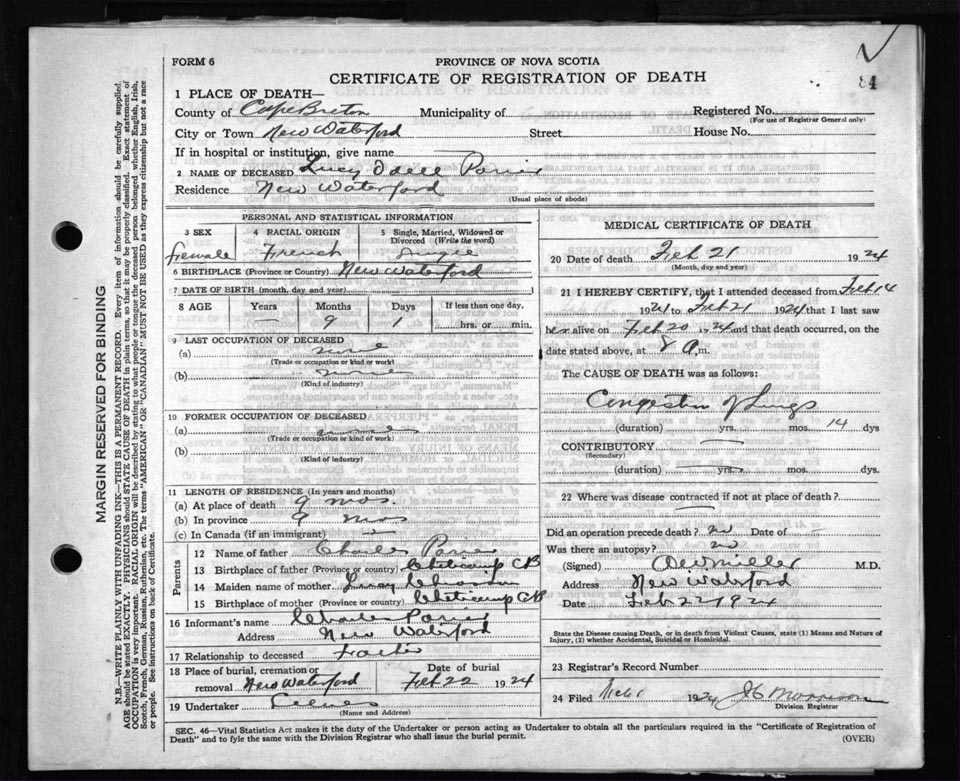 FORM 6
PROVINCE OF NOVA SCOTIA
CERTIFICATE OF REGISTRATION OF DEATH
4
1 PLACE OF DEATH—
County of Cape Breton Municipality of Registered No.
(For use of Registrar General only)
City or Town New Waterford Street House No.
If in hospital or institution, give name
2 NAME OF DECEASED Lucy Odell
Residence New Waterford
(Usual place of abode)
PERSONAL AND STATISTICAL INFORMATION
3 SEX 4 RACIAL ORIGIN 5 Single, Married, Widowed or Divorced (Write the word)
Female French Single
6 BIRTHPLACE (Province or Country) New Waterford
7 DATE OF BIRTH (month, day and year)
8 AGE Years Months Days If less than one day,
— 9 1 hrs. or min.
9 LAST OCCUPATION OF DECEASED
(a) none
(Trade or occupation or kind or work)
(b) none
(Kind of industry)
10 FORMER OCCUPATION OF DECEASED
(a) none
(Trade or occupation or kind of work)
(b)
(Kind of industry)
11 LENGTH OF RESIDENCE (In years and months)
(a) At place of death 9 mos.
(b) In province 9 mos
(c) In Canada (if an immigrant) —
Parents
12 Name of father Charles
13 Birthplace of father (Province or country) Cheticamp CB
14 Maiden name of mother Lucy
15 Birthplace of mother (Province or country) Cheticamp CB
16 Informant's name Charles
Address New Waterford
17 Relationship to deceased Father
18 Place of burial, cremation or removal New Waterford Date of burial Feb 22 1924
19 Undertaker
(Name and Address)
MEDICAL CERTIFICATE OF DEATH
20 Date of death Feb 21 1924
(Month, day and year)
21 I HEREBY CERTIFY, that I attended deceased from Feb 14
1924 to Feb 21 1924 that I last saw
her alive on Feb 20 1924 and that death occurred, on the
date stated above, at 8 A.m.
The CAUSE OF DEATH was as follows:
Congestion of Lungs
(duration) yrs. mos. 14 dys
CONTRIBUTORY —
(Secondary)
(duration) — yrs. mos. dys.
22 Where was disease contracted if not at place of death?
—
Did an operation precede death? no Date of
Was there an autopsy? no
(Signed) Miller M.D.
Address New Waterford
Date Feb 22 1924
State the Disease causing Death, or in death from Violent Causes, state (1) Means and Nature of Injury, (2) whether Accidental, Suicidal or Homicidal.
23 Registrar's Record Number
24 Filed 1924 Morrison
Division Registrar
SEC. 46—Vital Statistics Act makes it the duty of the Undertaker or person acting as Undertaker to obtain all the particulars required in the "Certificate of Registration of
Death" and to fyle the same with the Division Registrar who shall issue the burial permit.
(OVER)
MARGIN RESERVED FOR BINDING
N.B.—WRITE PLAINLY WITH UNFADING INK—THIS IS A PERMANENT RECORD. Every item of information should be carefully supplied.
AGE should be stated EXACTLY. PHYSICIANS should STATE CAUSE OF DEATH in plain terms, so that it may be properly classified. Exact statement of
OCCUPATION is very important. RACIAL ORIGIN will be described by stating to what people or tongue the deceased person belonged whether English, Irish,
Scotch, French, German, Russian, Ruthenian, etc. The terms "AMERICAN" OR "CANADIAN" MUST NOT BE USED as they express citizenship but not a race
or people. See instructions on back of Certificate.